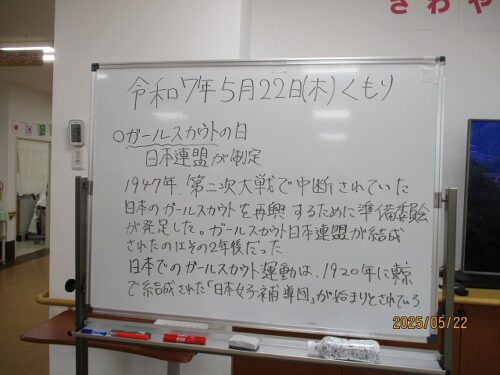 さわや
令和7年5月22日(木)くもり
○ガールスカウトの日
日本連盟が制定
1947年、第二次大戦で中断されていた
日本のガールスカウトを再興するために準備委員会
が発足した。ガールスカウト日本連盟が結成
されたのはその2年後だった
日本でのガールスカウト運動は、1920年に東京
で結成された「日本女子補導団」が始まりとされている
2025/05/22